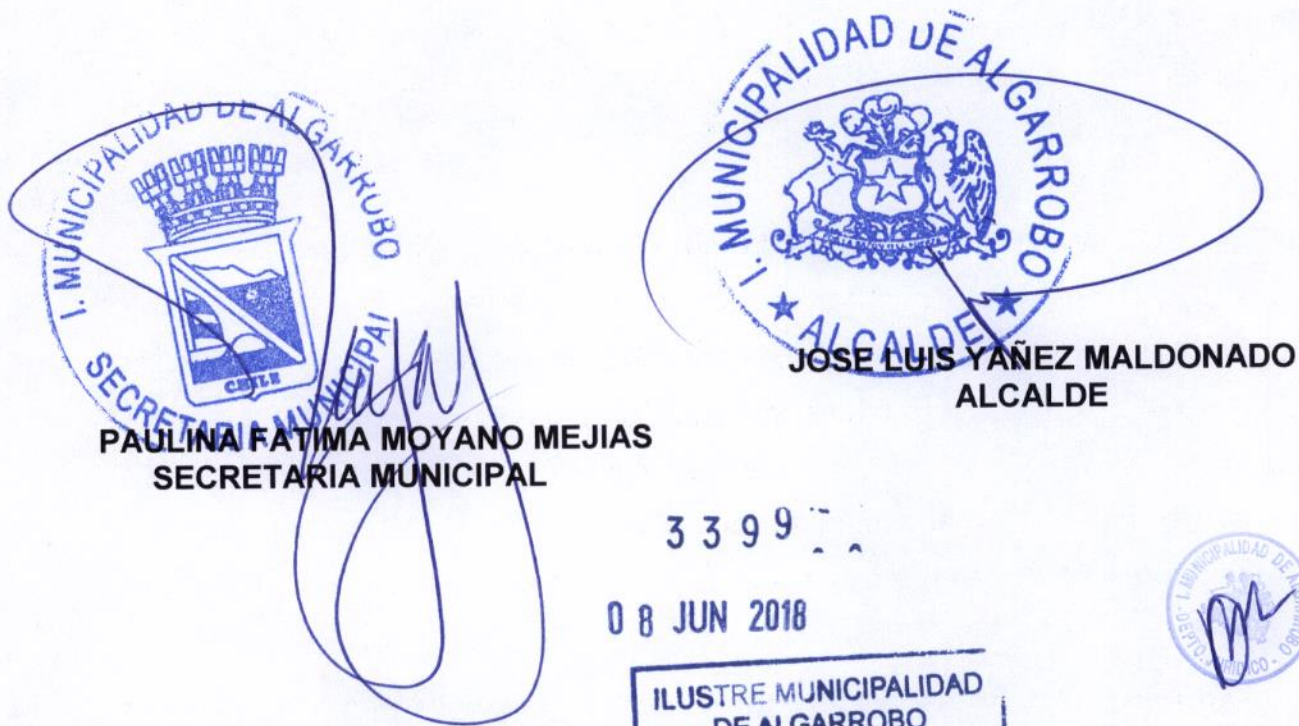 I. MUNICIPALIDAD DE ALGARROBO
SECRETARIA MUNICIPAL
CHILE
PAULINA FATIMA MOYANO MEJIAS
SECRETARIA MUNICIPAL
I. MUNICIPALIDAD DE ALGARROBO
★ ALCALDE ★
JOSE LUIS YAÑEZ MALDONADO
ALCALDE
3399
08 JUN 2018
ILUSTRE MUNICIPALIDAD
DE ALGARROBO
I. MUNICIPALIDAD DE ALGARROBO
DEPTO. JURIDICO